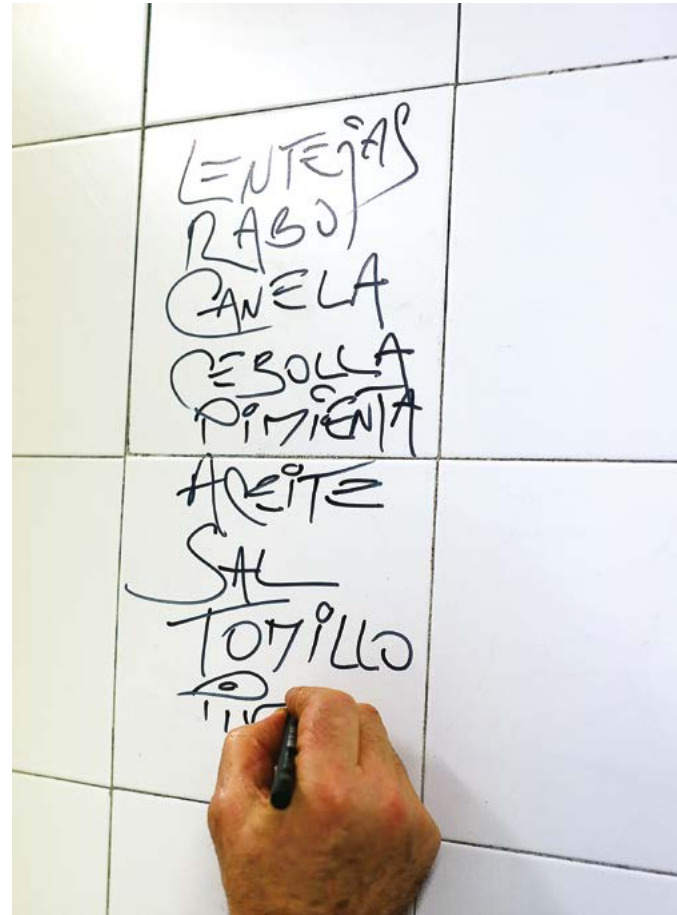 LENTEJAS
RABO
CANELA
CEBOLLA
PIMIENTA
ACEITE
SAL
TOMILLO